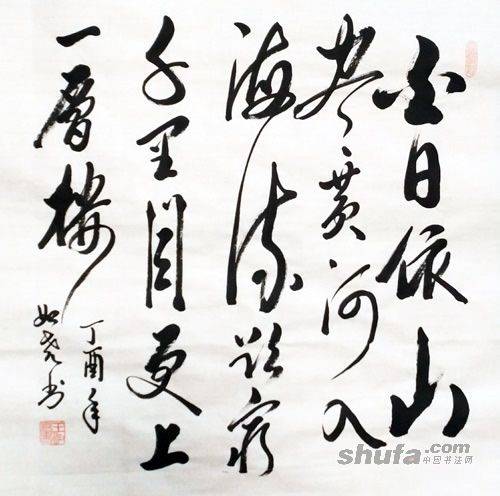 白日依山
尽黄河入
海流欲窮
千里目更上
一層樓
丁酉年
如尧书
shufa.com
中国书法网